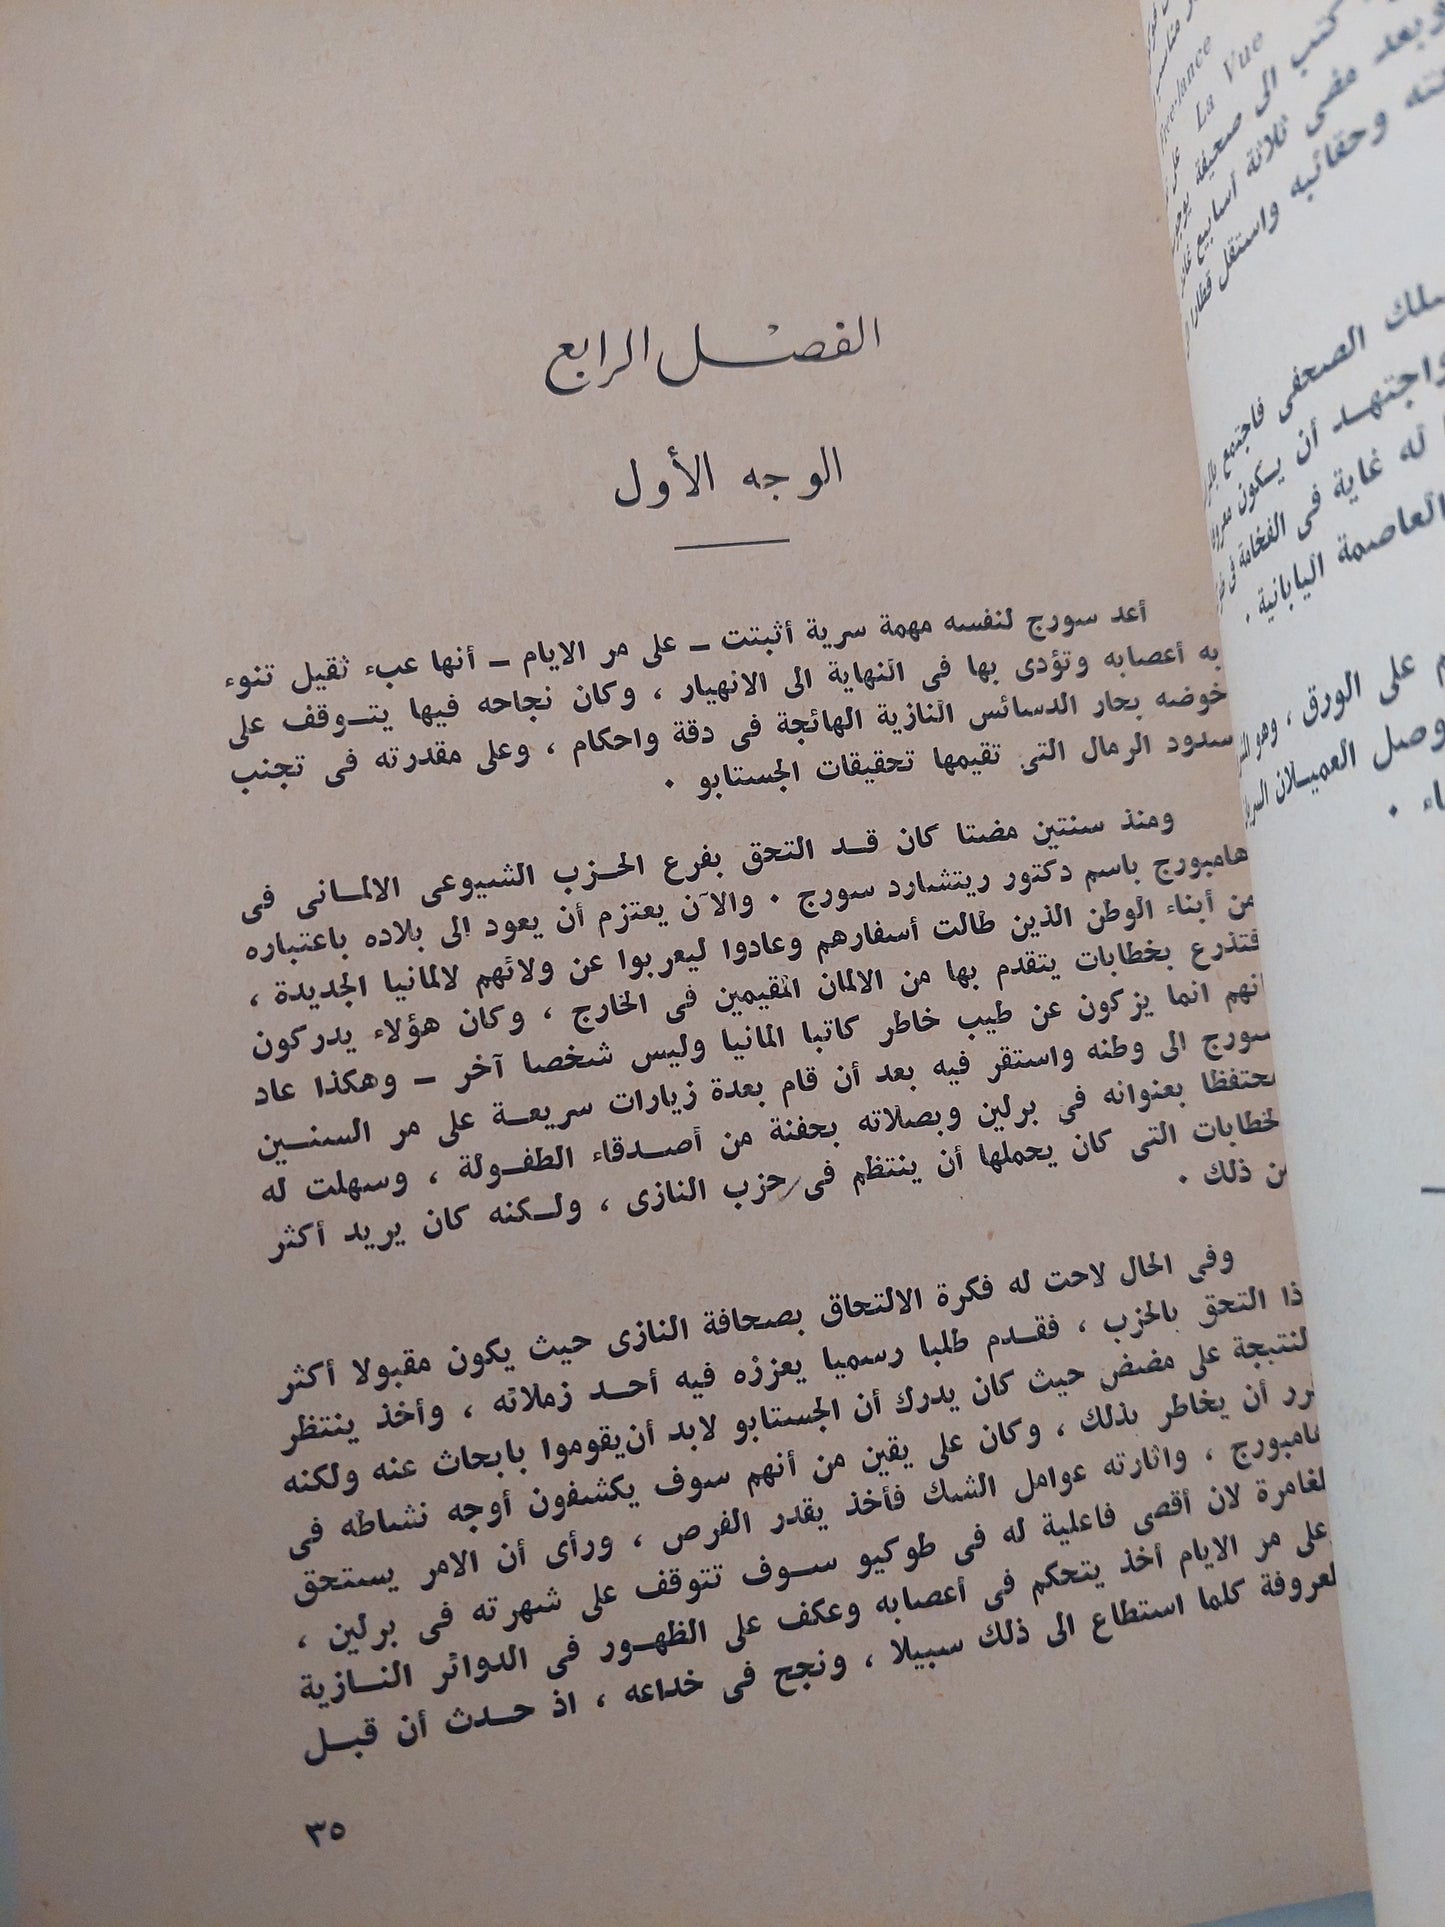 الفصل الرابع
الوجه الأول
أعد سورج لنفسه مهمة سرية أثبتت ــ على مر الايام ــ أنها عبء ثقيل تنوء
به أعصابه وتؤدى بها فى النهاية الى الانهيار ، وكان نجاحه فيها يتــوقف على
خوضه بحار الدسائس النازية الهائجة فى دقة واحكام ، وعلى مقدرته فى تجنب
سدود الرمال التى تقيمها تحقيقات الجستابو ٠
ومنذ سنتين مضتا كان قــد التحق بفرع الحــزب الشيوعى الالمــانى فى
هامبورج باسم دكتور ريتشارد سورج ٠ والآن يعتزم أن يعود الى بلاده باعتباره
من أبناء الوطن الذين طالت أسفارهم وعادوا ليعربوا عن ولائهم لالمانيا الجديدة ،
فتذرع بخطابات يتقدم بها من الالمان المقيمين فى الخارج ، وكان هؤلاء يدركون
أنهم انما يزكون عن طيب خاطر كاتبا المانيا وليس شخصا آخر ــ وهكذا عاد
سورج الى وطنه واستقر فيه بعد أن قام بعدة زيارات سريعــة على مر السنــين
محتفظا بعنوانه فى برلين وبصلاته بحفنة من أصــدقاء الطفــولة ، وسهلت له
الخطابات التى كان يحملها أن ينتظم فى حزب النازى ، ولــكنه كان يريد أكثر
من ذلك ٠
وفى الحال لاحت له فكرة الالتحاق بصحافة النازى حيث يكون مقبولا أكثر
ذا التحق بالحزب ، فقــدم طلبا رسميا يعززه فيه أحــد زملائه ، وأخذ ينتظر
النتيجة على مضض حيث كان يدرك أن الجستابو لابد أن يقوموا بابحاث عنه ولكنه
قرر أن يخاطر بذلك ، وكان على يقين من أنهم سوف يكشفون أوجه نشاطه فى
هامبورج ، واثارته عوامل الشك فأخذ يقدر الفرص ، ورأى أن الامر يستحق
المغامرة لان أقصى فاعلية له فى طوكيو ســوف تتوقف على شهرته فى برلين ،
وعلى مر الايام أخذ يتحكم فى أعصابه وعكف على الظهــور فى الدوائر النــازية
المعروفة كلما استطاع الى ذلك سبيلا ، ونجح فى خداعه ، اذ حــدث أن قبــل
٣٥
Free-lance
كتب الى صحيفة
La Vue
وبعد مضى ثلاثة أسابيع
وحقائبه واستقل قطارا
الصحفى فاجتمع
واجتهــد أن يــكون
له غاية فى الفخامة فى
العاصمة اليابانية ٠
على الورق ، وهو
وصل العميــلان